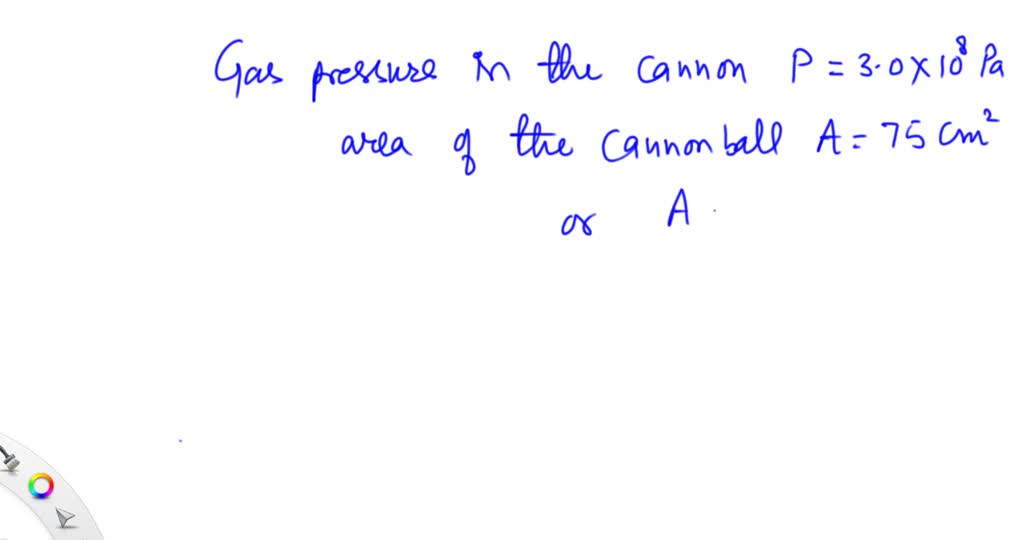 Gas pressure in the cannon P = 3.0 × 10⁸ Pa
area of the cannonball A = 75 cm²
or A